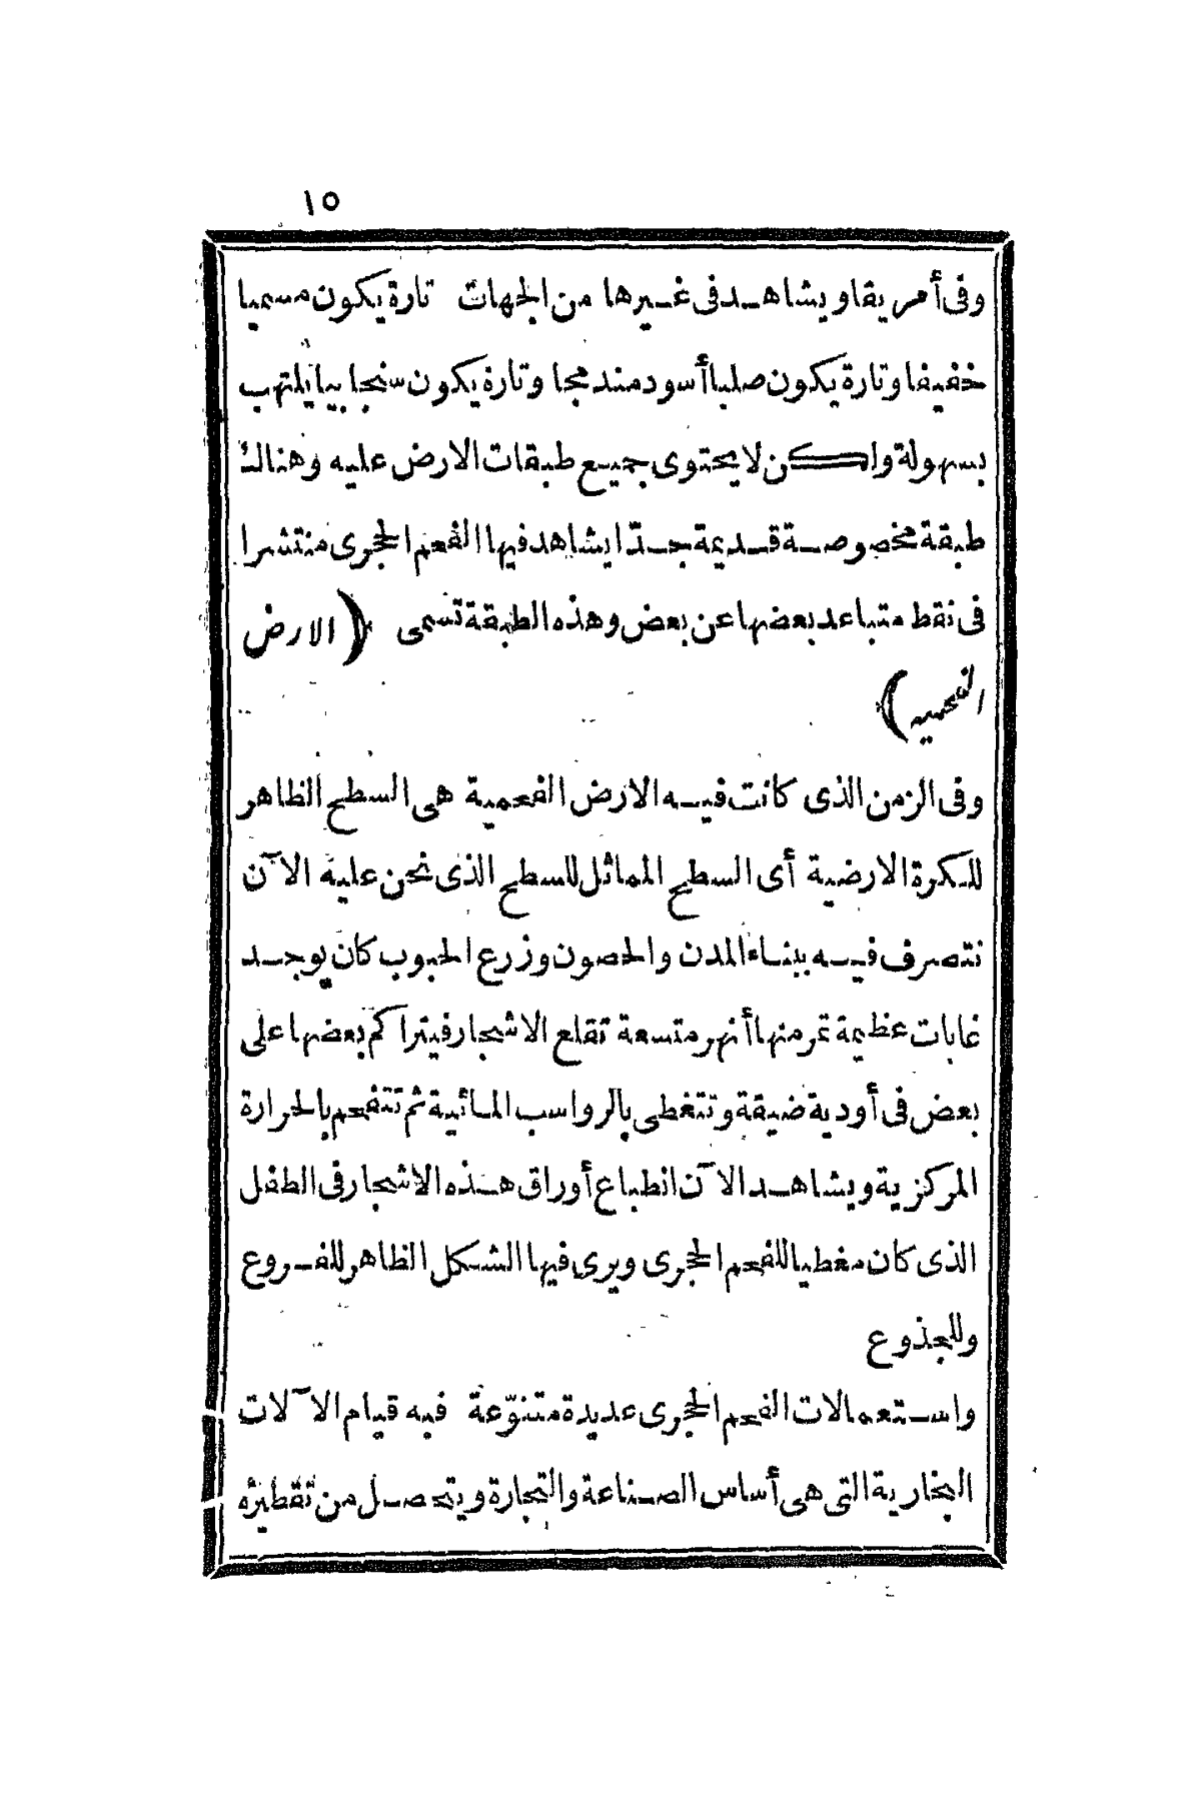 ١٥
وفى أمريقا ويشاهد فى غيرها من الجهات تارة يكون مسميا
خفيفا وتارة يكون صلبا أسود مندمجا وتارة يكون سنجابيا يلتهب
بسهولة ولكن لا يحتوى جميع طبقات الارض عليه وهنالك
طبقة مخصوصة قديمة جدّا يشاهد فيها الفحم الحجرى منتشرا
فى نقط متباعد بعضها عن بعض وهذه الطبقة تسمى (الارض
الفحميه)
وفى الزمن الذى كانت فيه الارض الفحمية هى السطح الظاهر
للكرة الارضية أى السطح المماثل للسطح الذى نحن عليه الآن
نتصرف فيه ببناء المدن والحصون وزرع الحبوب كان يوجد
غابات عظيمة تمر منها أنهر متسعة تقلع الاشجار فيتراكم بعضها على
بعض فى أودية ضيقة وتتغطى بالرواسب المائية ثم تتفحم بالحرارة
المركزية ويشاهد الآن انطباع أوراق هذه الاشجار فى الطفل
الذى كان مغطيا للفحم الحجرى ويرى فيها الشكل الظاهر للفروع
وللجذوع
واستعمالات الفحم الحجرى عديدة متنوّعة فبه قيام الآلات
البخارية التى هى أساس الصناعة والتجارة ويتحصل من تقطيره